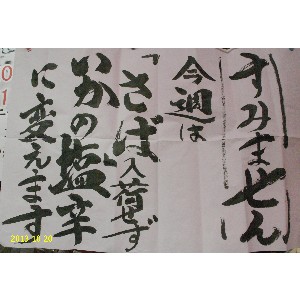 すみません
今週は
「さば」入荷せず
いかの塩辛
に変えます
2013 10 20